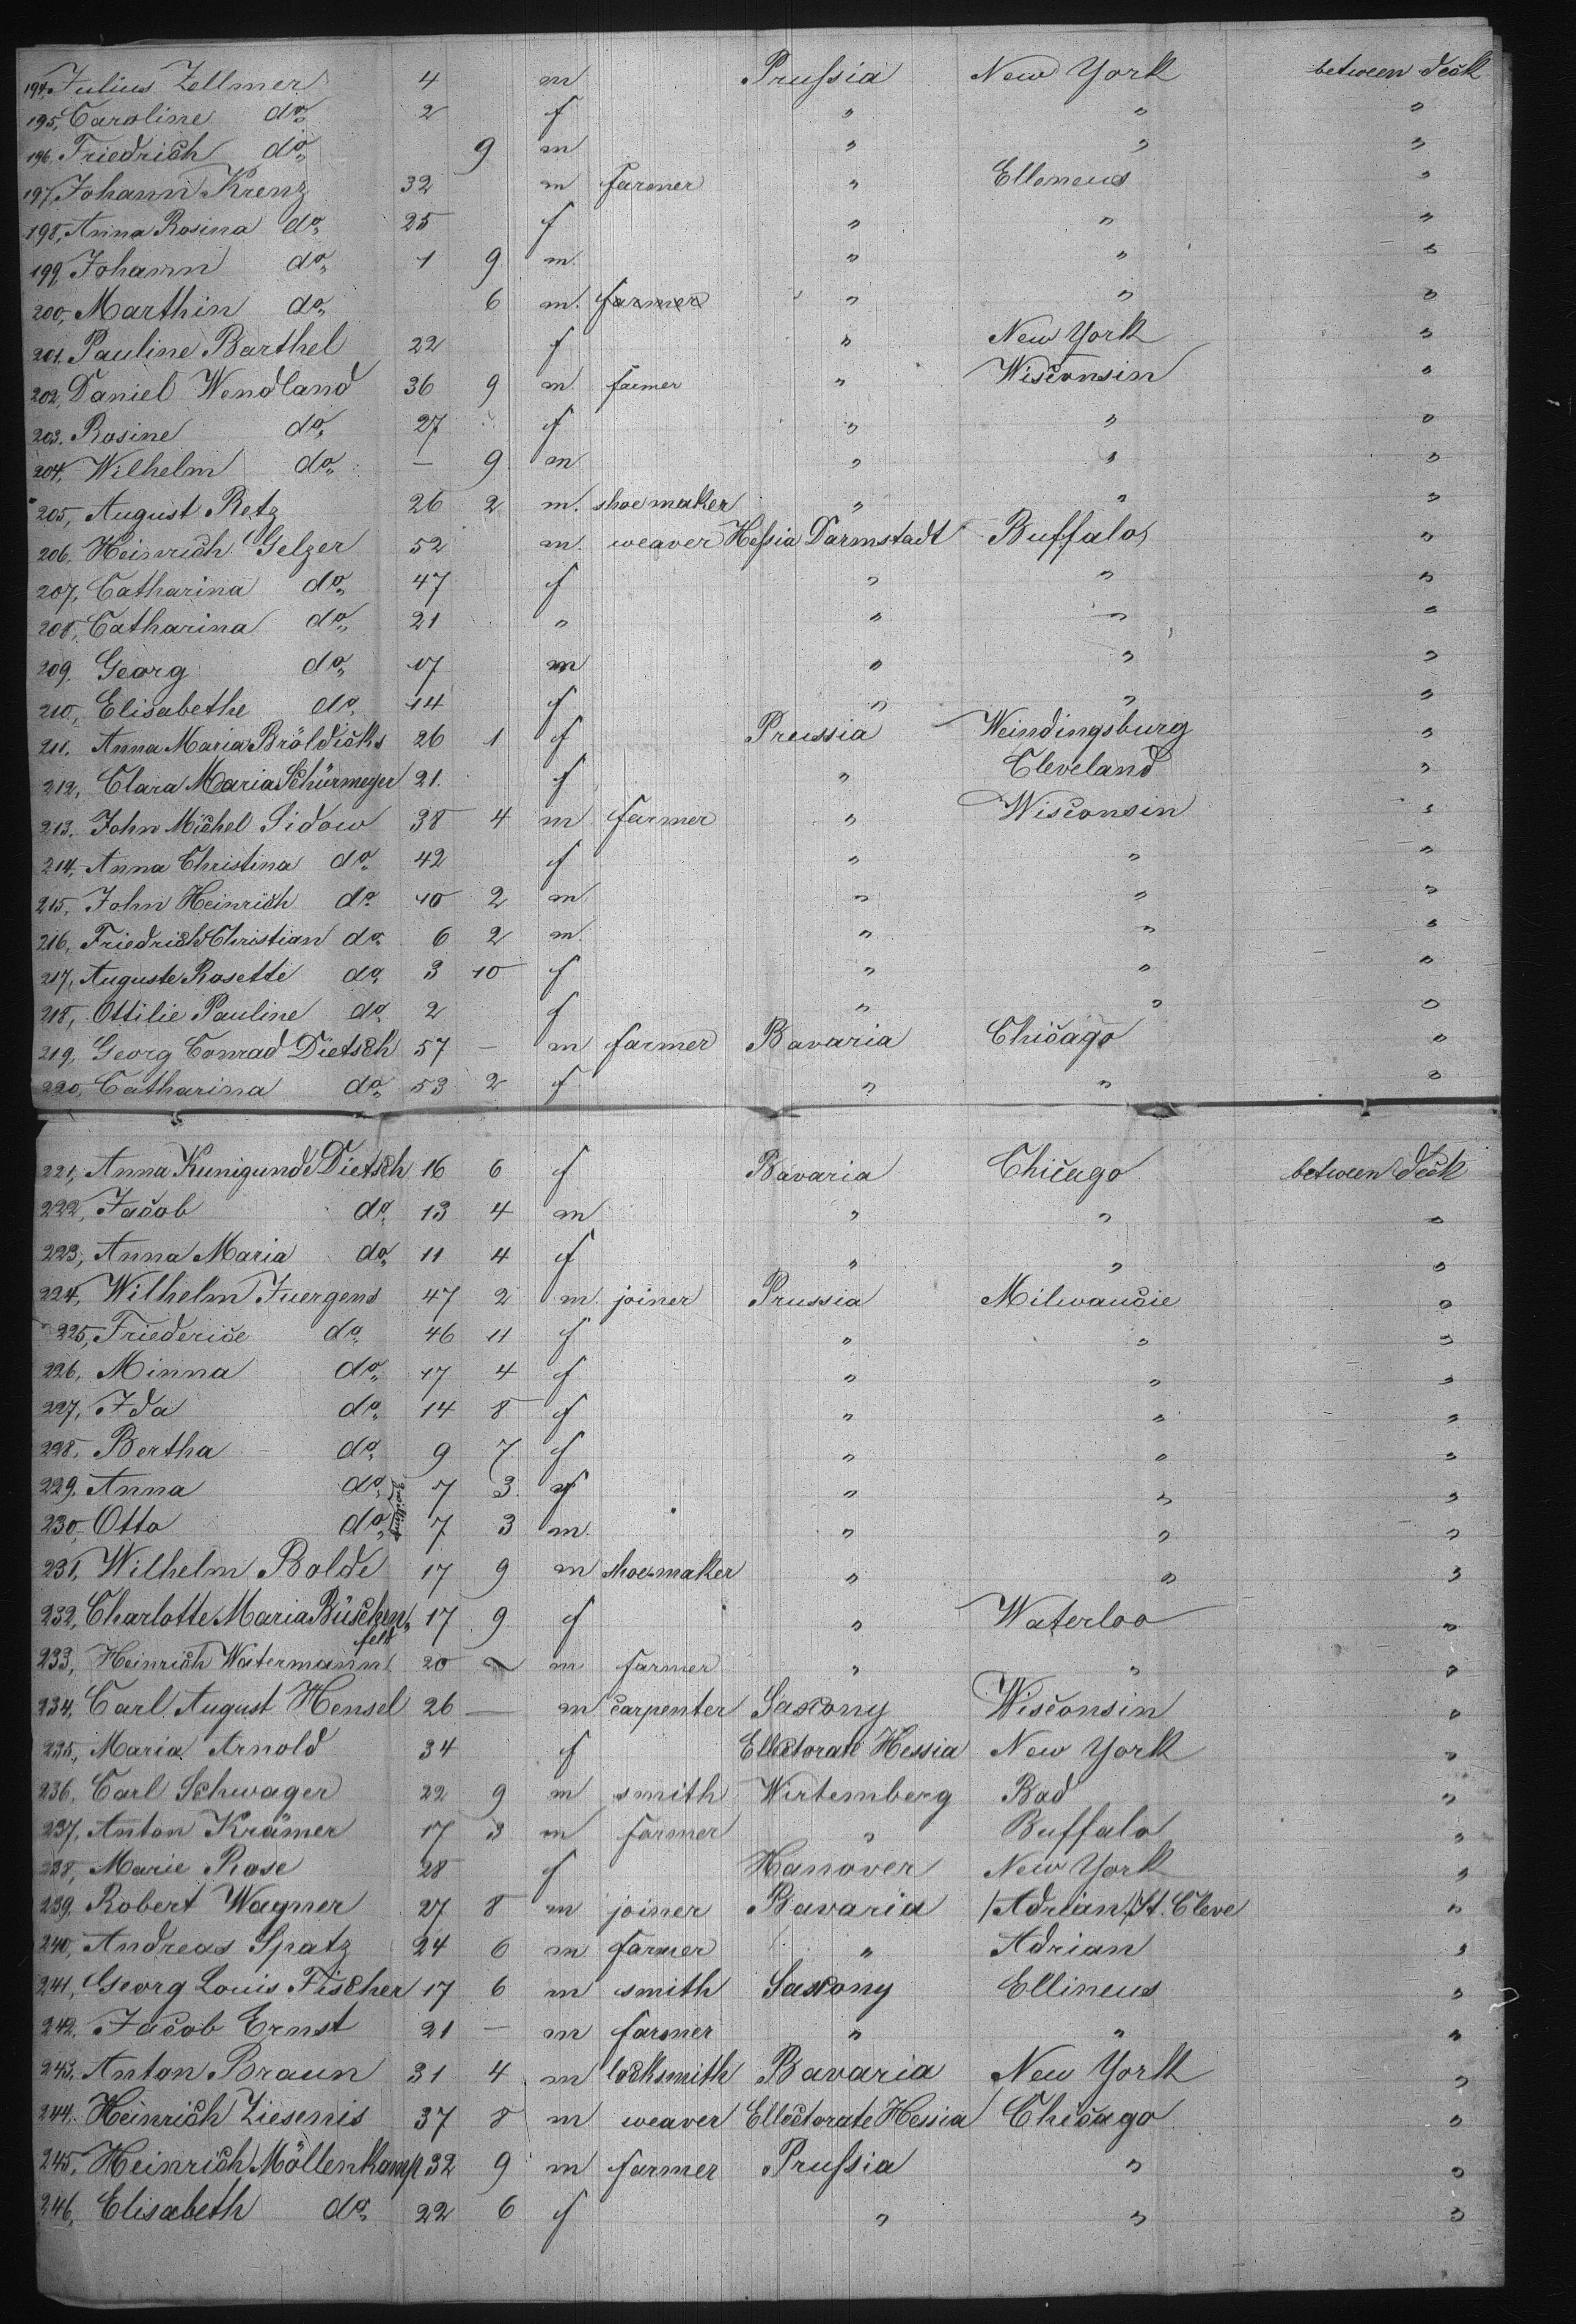 194, Julius Zellmer 4 m Prussia New York between deck
195, Caroline do 2 f " " "
196. Friedrich do 9 m " " "
197, Johann Krenz 32 m farmer " Elleneus "
198, Anna Rosina do 25 f " " "
199, Johann do 1 9 m. " " "
200, Marthin do 6 m. farmer " " "
201. Pauline Barthel 22 f " New York "
202, Daniel Wendland 36 9 m. farmer " Wisconsin "
203. Rosine do 27 f " " "
204, Wilhelm do — 9 m " " "
205, August Retz 26 2 m. shoemaker " " "
206, Heinrich Gelzer 52 m. weaver Hessia Darmstadt Buffalo "
207, Catharina do 47 f " " "
208, Catharina do 21 " " " "
209. Georg do 17 m " " "
210, Elisabethe do 14 f " " "
211. Anna Maria Bröldicks 26 1 f Preussia Weindingsburg "
212, Clara Maria Schürmeyer 21. f " Cleveland "
213. John Michel Sidow 38 4 m farmer " Wisconsin "
214, Anna Christina do 42 f " " "
215, John Heinrich do 10 2 m " " "
216, Friedrich Christian do 6 2 m. " " "
217, Auguste Rosette do 3 10 f " " "
218, Ottilie Pauline do 2 f " " "
219, Georg Conrad Dietsch 57 — m farmer Bavaria Chicago "
220, Catharina do 53 2 f " " "
221, Anna Kunigunde Dietsch 16 6 f Bavaria Chicago between deck
222, Jacob do 13 4 m " " "
223, Anna Maria do 11 4 f " " "
224, Wilhelm Juergens 47 2 m. joiner Prussia Milwaucie "
225, Friederice do 46 11 f " " "
226, Minna do 17 4 f " " "
227, Ida do 14 8 f " " "
228, Bertha do 9 7 f " " "
229, Anna do 7 3 f " " "
230, Otto do 7 3 m. " " "
231, Wilhelm Bolde 17 9 m shoemaker " " "
232, Charlotte Maria Büschen 17 9 f " Waterloo "
feld
233, Heinrich Watermann 20 ~ m farmer " " "
234, Carl August Hensel 26 — m carpenter Saxony Wisconsin "
235, Maria Arnold 34 f Ellectorate Hessia New York "
236, Carl Schwager 22 9 m smith Wirtemberg Bad "
237, Anton Krämer 17 3 m farmer " Buffalo "
238, Marie Rose 28 f Hanover New York "
239, Robert Wagner 27 8 m joiner Bavaria Adrian, St. Cleve "
240, Andreas Spatz 24 6 m farmer " Adrian "
241, Georg Louis Fischer 17 6 m smith Saxony Ellineus "
242, Jacob Ernst 21 — m farmer " " "
243, Anton Braun 31 4 m locksmith Bavaria New York "
244, Heinrich Ziesenis 37 8 m weaver Ellectorate Hessia Chicago "
245, Heinrich Möllenkamp 32 9 m farmer Prussia " "
246, Elisabeth do 22 6 f " " "